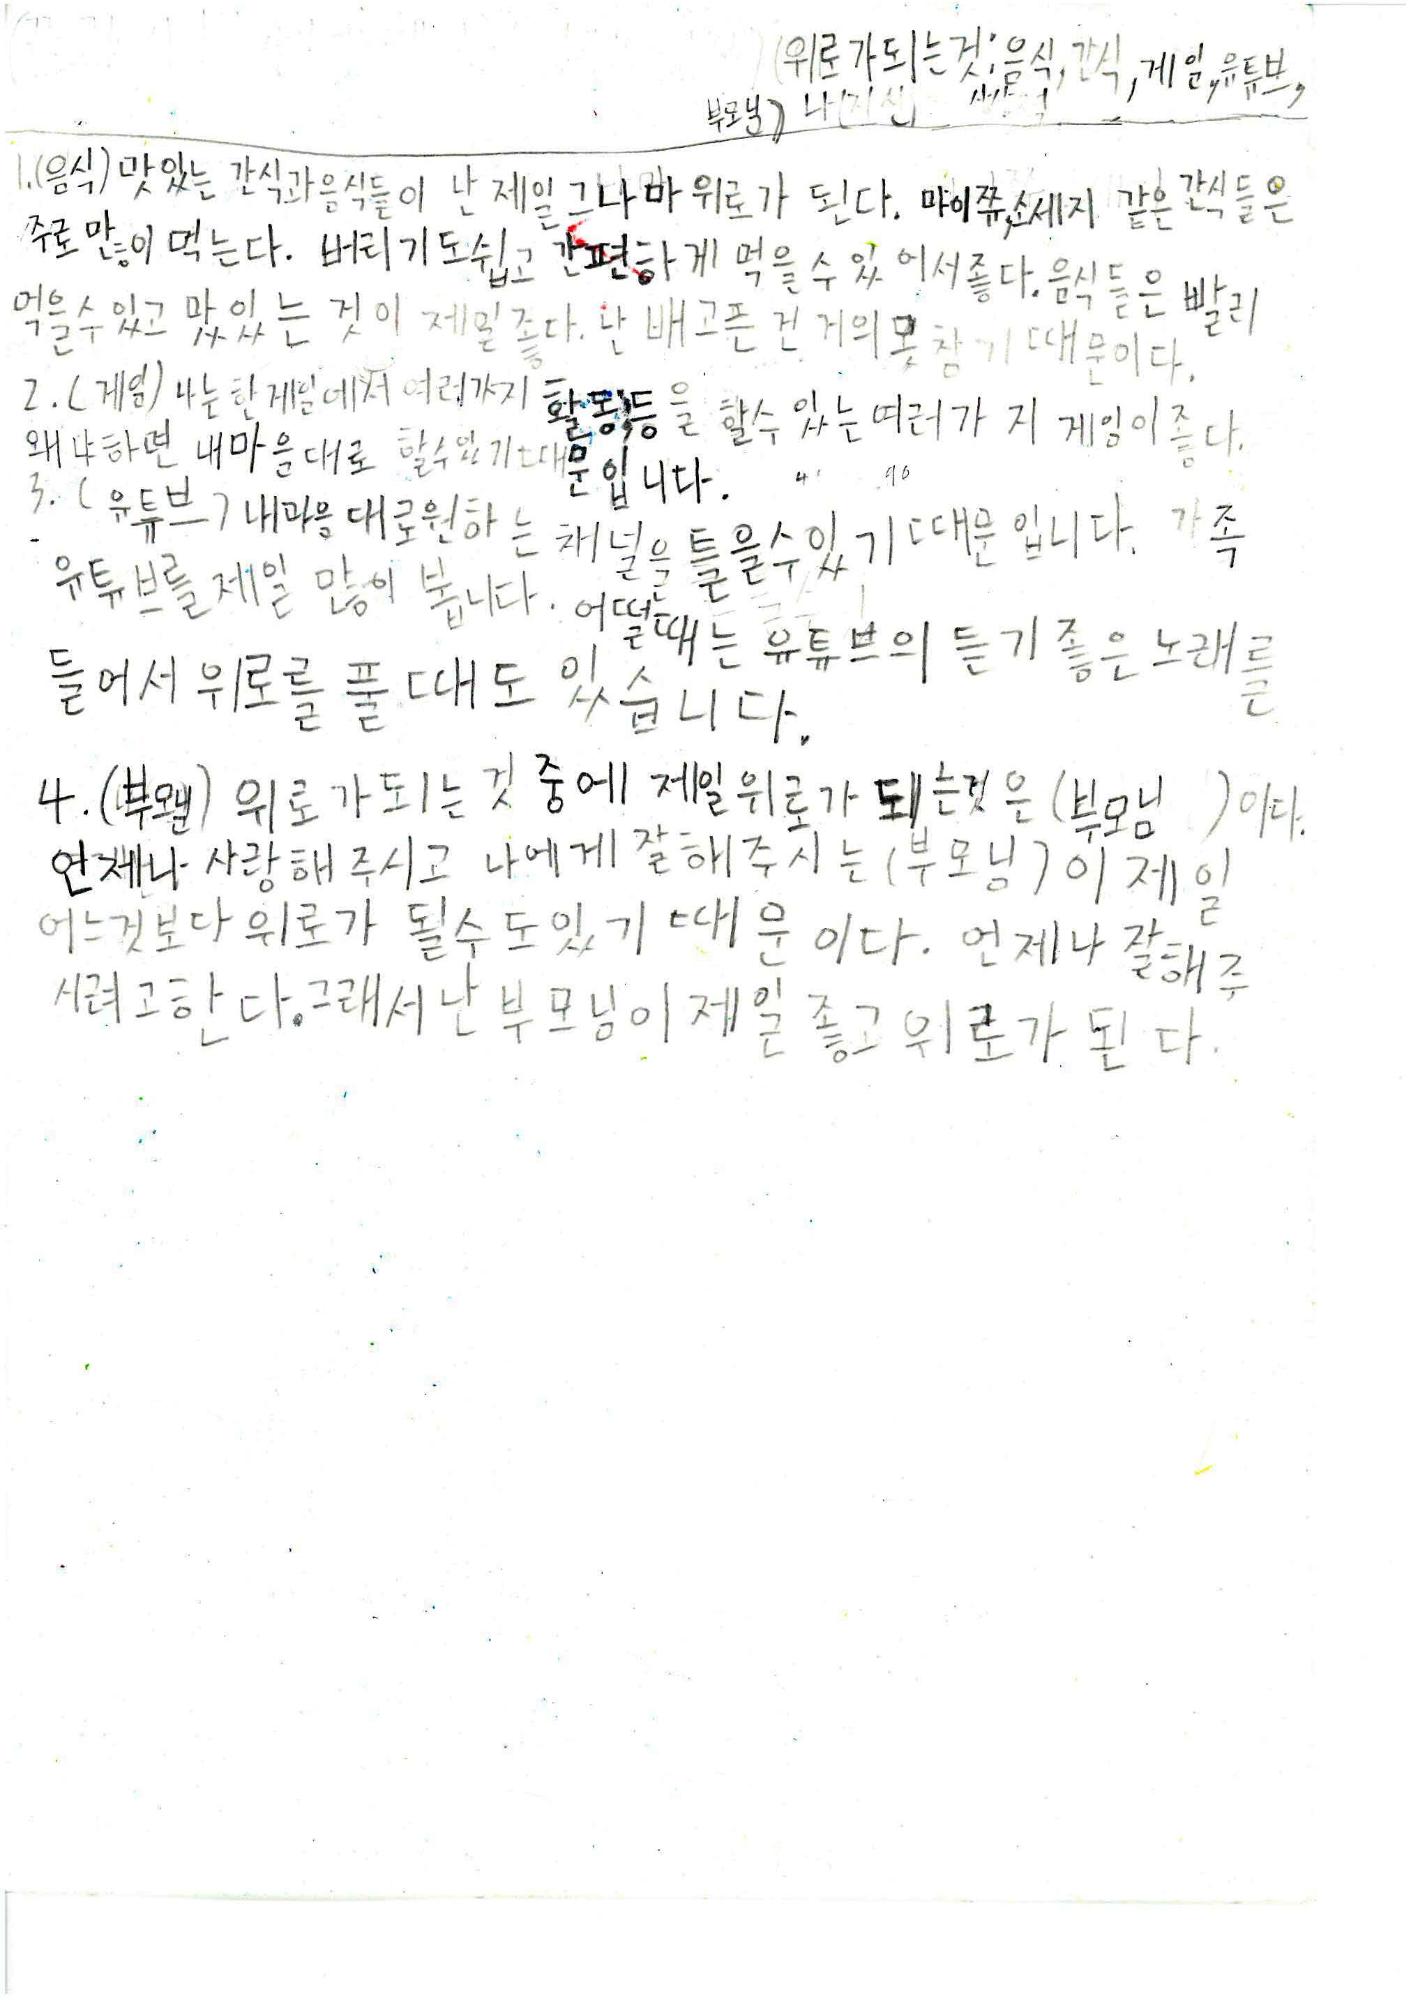 (위로가되는것:음식,간식,게임,유튜브,
부모님) 나(자신)
1.(음식) 맛있는 간식과음식들이 난 제일 그나마 위로가 된다. 마이쮸,소세지 같은 간식들은
주로 많이 먹는다. 버리기도쉽고 간편하게 먹을수있 어서좋다.음식들은 빨리
먹을수있고 맜있는 것이 제일좋다. 난 배고픈건 거의못참기때문이다.
2.(게임) 나는한게임에서 여러가지 활동등을 할수있는여러가지 게임이좋다.
왜냐하면 내마을대로 할수있기때문입니다.
3.(유튜브) 내마음대로원하는 채널을 틀을수있기때문입니다. 가족
유튜브를 제일 많이 봅니다. 어떨때는 유튜브의 듣기좋은노래를
들어서 위로를 풀때도 있습니다.
4.(부모님) 위로가되는것 중에 제일위로가 돼는것은 (부모님 )이다.
언제나 사랑해주시고 나에게 잘해주시는(부모님)이 제일
어느것보다 위로가 될수도있기때문이다. 언제나 잘해주
시려고한다.그래서 난 부모님이 제일 좋고 위로가 된다.